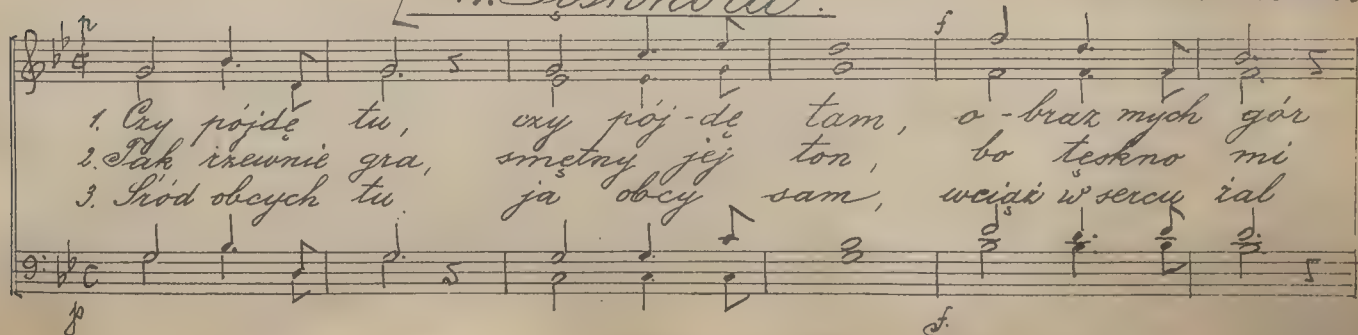 p f
1. Czy pójdę tu, czy pój-dę tam, o-braz mych gór
2. Tak rzewnie gra, smętny jej ton, bo tęskno mi
3. Śród obcych tu ja obcy sam, wciąż w sercu żal
p f.